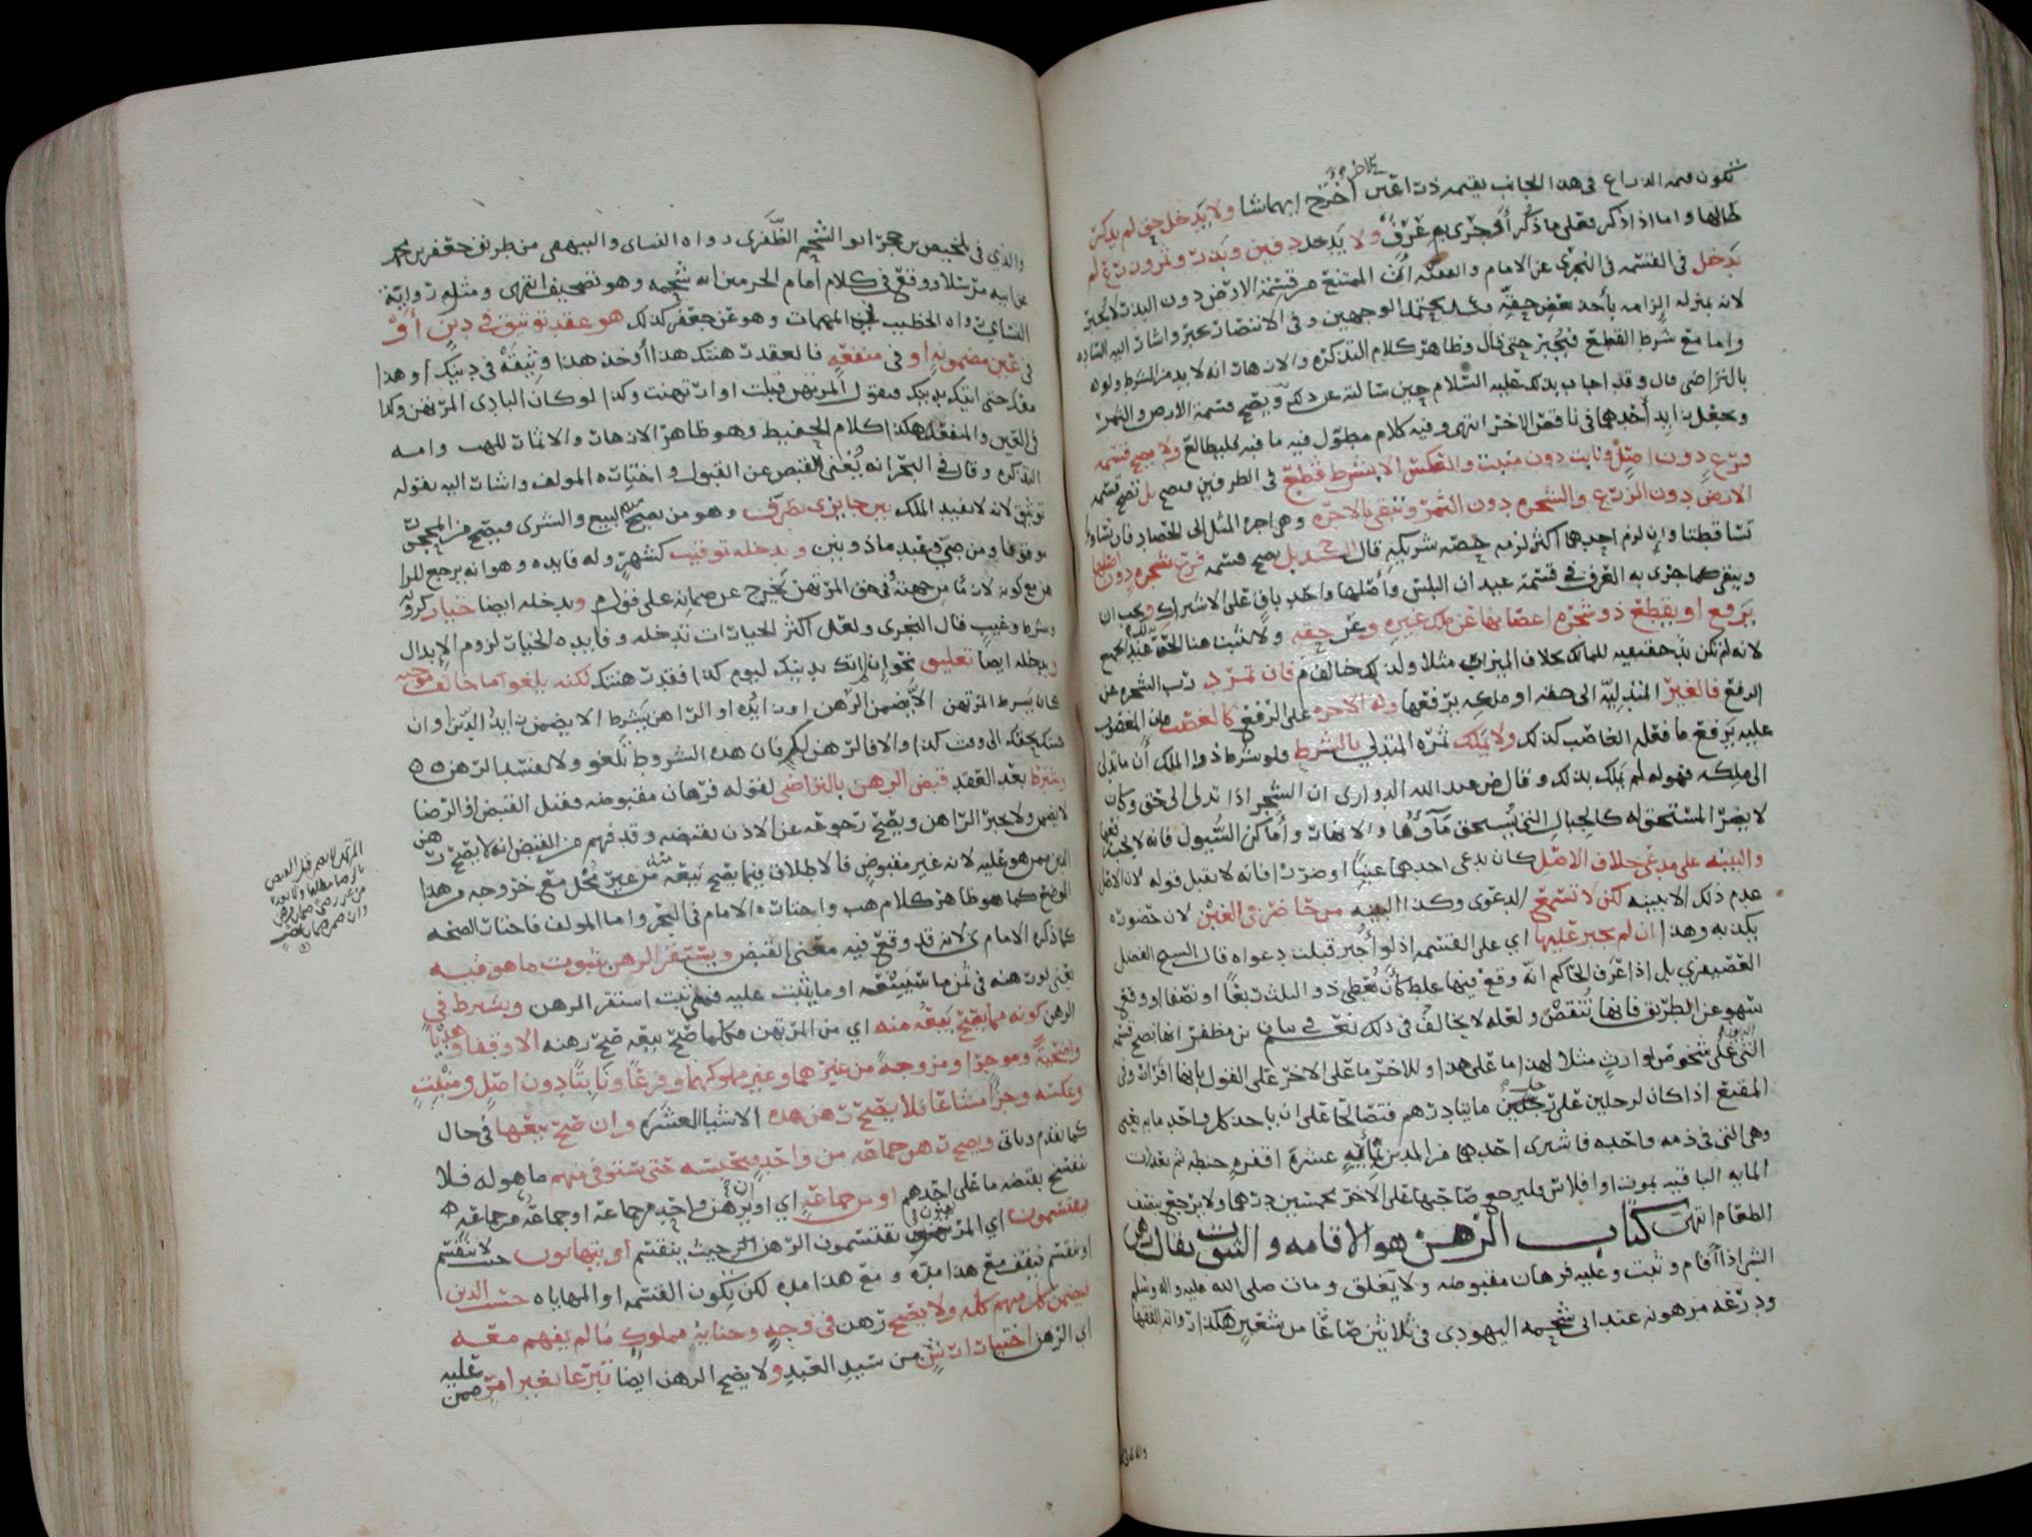 في هذا الجانب بقيمة ذراعين اخرج ايهما شا ولا يدخل حق لم يذكر
طالبها واما اذا ذكر فعلى ما ذكر أو جرى به عرف ولا يدخل دفين وبذر وثمرون
يدخل في القسمة في البحرى عن الامام والفقيه أن الممتنع من قسمة الارض دون البذر لا يجبر
لانه بمنزله إلزامه بأخذ بعض حقه الوجهين وفي الانتصار يجبر واشار اليه
واما مع شرط القطع فيجبر حتى قال وظاهر كلام التذكره والازهار انه لا بد من الشرط ولو
بالتراضي قال وقد اجاب بذلك عليه السلام حين سالته عن ذلك ويصح قسمة الارض والثمر
أحدهما في ناقص الاخر انتهى وفيه كلام مطول فيه ما فيه فليطالع ولا يصح قسمه
فرع دون اصل ونابت دون منبت والعكس الا بشرط قطع في الطرفين فيصح بل تصح قسمه
الارض دون الزرع والشجره دون الثمر وتبقى بالاجره وهي اجره المثل الى الحصاد فان تساوتا
تساقطتا وإن لزم احدهما أكثر لزمه حصه شريكه قال بل يصح قسمه شجره دون اصلها
وينبغي كما جرى به العرف في قسمة عيدان البلس وأصلها واحد باق على الاشتراك ويجب ان
يرفع او يقطع ذو شجره اعصانها عن ملك غيره وعن حقه ولا يثبت هنا الحق عند الجميع
لانه لم يكن بحقيقيه للمالك بخلاف الميزاب مثلا ولذلك خالف م فان تمرد رب الشجره عن
الرفع فالغير المتدليه الى حقه او ملكه يرفعها وله الاجره على الرفع كالغصب فان المغصوب
عليه يرفع ما فعله الغاصب كذلك ولا يملك ثمره المتدلي بالشرط ولو شرط ذوا الملك أن ما تدلى
الى ملكه فهو له لم يملك بذلك وقال ض عبد الله الدواري ان الشجر اذا تدلى الى حق وكان
لا يضر المستحق له كالجبال التي يستحق مآؤها والانهار وأماكن السيول فانه لا يجب
والبينه على مدعي خلاف الاصل كان يدعي احدهما غبنا او ضررا فانه لا يقبل قوله لان الاصل
عدم ذلك الا ببينه لكن لا تسمع الدعوى وكذا البينه من حاضر في الغبن لان حضوره
يكذبه وهذا ان لم يجبر عليها اي على القسمه اذ لو أُجبر قبلت دعواه قال الفضل
بل اذا عرف الحاكم انه وقع فيها غلط كأن يعطى ذو الثلث ربعا او نصفا او وقع
سهو عن الطريق فانها تنقض ولعله لا يخالف في ذلك بن مظفر انها تصح قسمه
التي على شخوص لوارث مثلا لهذا ما على هذا وللاخر ما على الاخر على القول بانها افراز وفي
المقنع اذا كان لرجلين على رجلين مايتا درهم فتصالحا على ان ياخذ كل واحد مايه
وهي التي في ذمه واحد فاشترى احدهما من المدين بمأيه عشرة اقفزه حنطه ثم تعذرت
المايه الباقيه بموت او افلاس فليرجع صاحبها على الاخر بخمسين درهما ولا يرجع بنصف
الطعام انتهى كتاب الرهن هو الاقامه والثبوت يقال رهن
الشي اذا أقام وثبت وعليه فرهان مقبوضه ولا يغلق ومات صلى الله عليه واله وسلم
ودرعه مرهونه عند ابي شحيمه اليهودي في ثلاثين صاعا من شعير هكذا رواته الفقها
والذي
والذي في تلخيص بن حجر ابو الشحم الظفري رواه النساي والبيهقي من طريق جعفر بن محمد
عن ابيه مرسلا ووقع في كلام امام الحرمين انه شحيمه وهو تصحيف انتهى ومثله رواية
النساي رواه الخطيب في المبهمات وهو عن جعفر كذلك هو عقد توثيق في دين أو
في عين مضمونه او في منفعه فالعقد رهنتك هذا أو خذ هذا وثيقة في دينك وهذا
معك حتى اتيك بدينك فيقول المرتهن قبلت او ارتهنت وكذا لو كان البادي المرتهن وكذا
في العين والمنفعه هكذا كلام الحفيظ وهو ظاهر الازهار والاثمار
التذكره وقال في البحر انه يغني القبض عن القبول واختاره المولف واشار اليه بقوله
توثيق لانه لا يفيد الملك بين جايزي تصرف وهو من يصح منه البيع والشرى فيصح من المحجور
موقوفا ومن صبي وعبد ماذونين ويدخله توقيت كشهر وله فايده وهو انه يرجع للرا
هن مع كونه لازما من جهته في حق المرتهن يخرج عن ضمانه على قول م ويدخله ايضا خيار كرويه
وشرط وعيب قال النجري ولعل أكثر الخيارات تدخله وفايده الخيار لزوم الابدال
ويدخله ايضا تعليق نحو إن اتك بدينك ليوم كذا فقد رهنتك لكنه يلغو ما خالف موجبه
كان يشرط المرتهن الا يضمن الرهن او زايده او الراهن بشرط الا يضمن زايد الدين او ان
بحقك الى وقت كذا والا فالرهن لك فان هذه الشروط تلغو ولا يفسد الرهن
ويشترط بعد العقد قبض الرهن بالتراضي لقوله فرهان مقبوضه فقبل القبض او الرضا
لا يضمن ولا يجبر الراهن ويصح رجوعه عن الاذن بقبضه وقد فهم من القبض انه لا يصح رهن
الدين ممن هو عليه لانه غير مقبوض فالاطلاق فيما يصح بيعه من غير محل مع خروجه من هذا
الموضع كما هو ظاهر كلام هب واختاره الامام في البحر واما المولف فاختار الصحه
كما ذكره الامام ي لانه قد وقع فيه معنى القبض ويستقر الرهن بثبوت ما هو فيه
يعني لو رهنه في ثمن ما سيبيعه او ما يثبت عليه فمتى ثبت استقر الرهن ويشرط في
الرهن كونه مما يصح بيعه منه اي من المرتهن فكلما صح بيعه صح رهنه الا وقفا وهديا
واضحية وموجرا ومزوجة من غيرهما وغير مملوكهما وفرعا ونابتا دون اصل ومنبت
وعكسه وجزأ مشاعا فلا يصح رهن هذه الاشيا العشره وان صح بيعها في حال
كما تقدم وياتي ويصح رهن جماعه من واحد ويحبسه حتى يستوفي منهم ما هو له فلا
ينفسخ بقبضه ما على احدهم او من جماعه اي او يرهن واحد من جماعه او جماعه من جماعه
فيقتسمون اي المرتهنون يقتسمون الرهن حيث ينقسم او يتهايون حيث لا ينقسم
او ينقسم فيقف مع هذا مده و مع هذا مده لكن تكون القسمه او المهاياه حسب الدين
فيضمن كل منهم كله ولا يصح رهن في وجه وجنايه مملوك ما لم يفهم معه
اي الرهن اختيار ارش من سيد العبد ولا يصح الرهن ايضا تبرعا بغير امر عليه